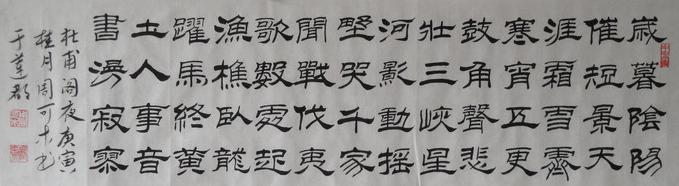 歲暮陰陽
催短景天
涯霜雪霽
寒宵五更
鼓角聲悲
壯三峽星
河影動搖
野哭千家
聞戰伐夷
歌數處起
漁樵臥龍
躍馬終黃
土人事音
書漫寂寥
杜甫阁夜庚寅
桂月周可木书
于蓮都